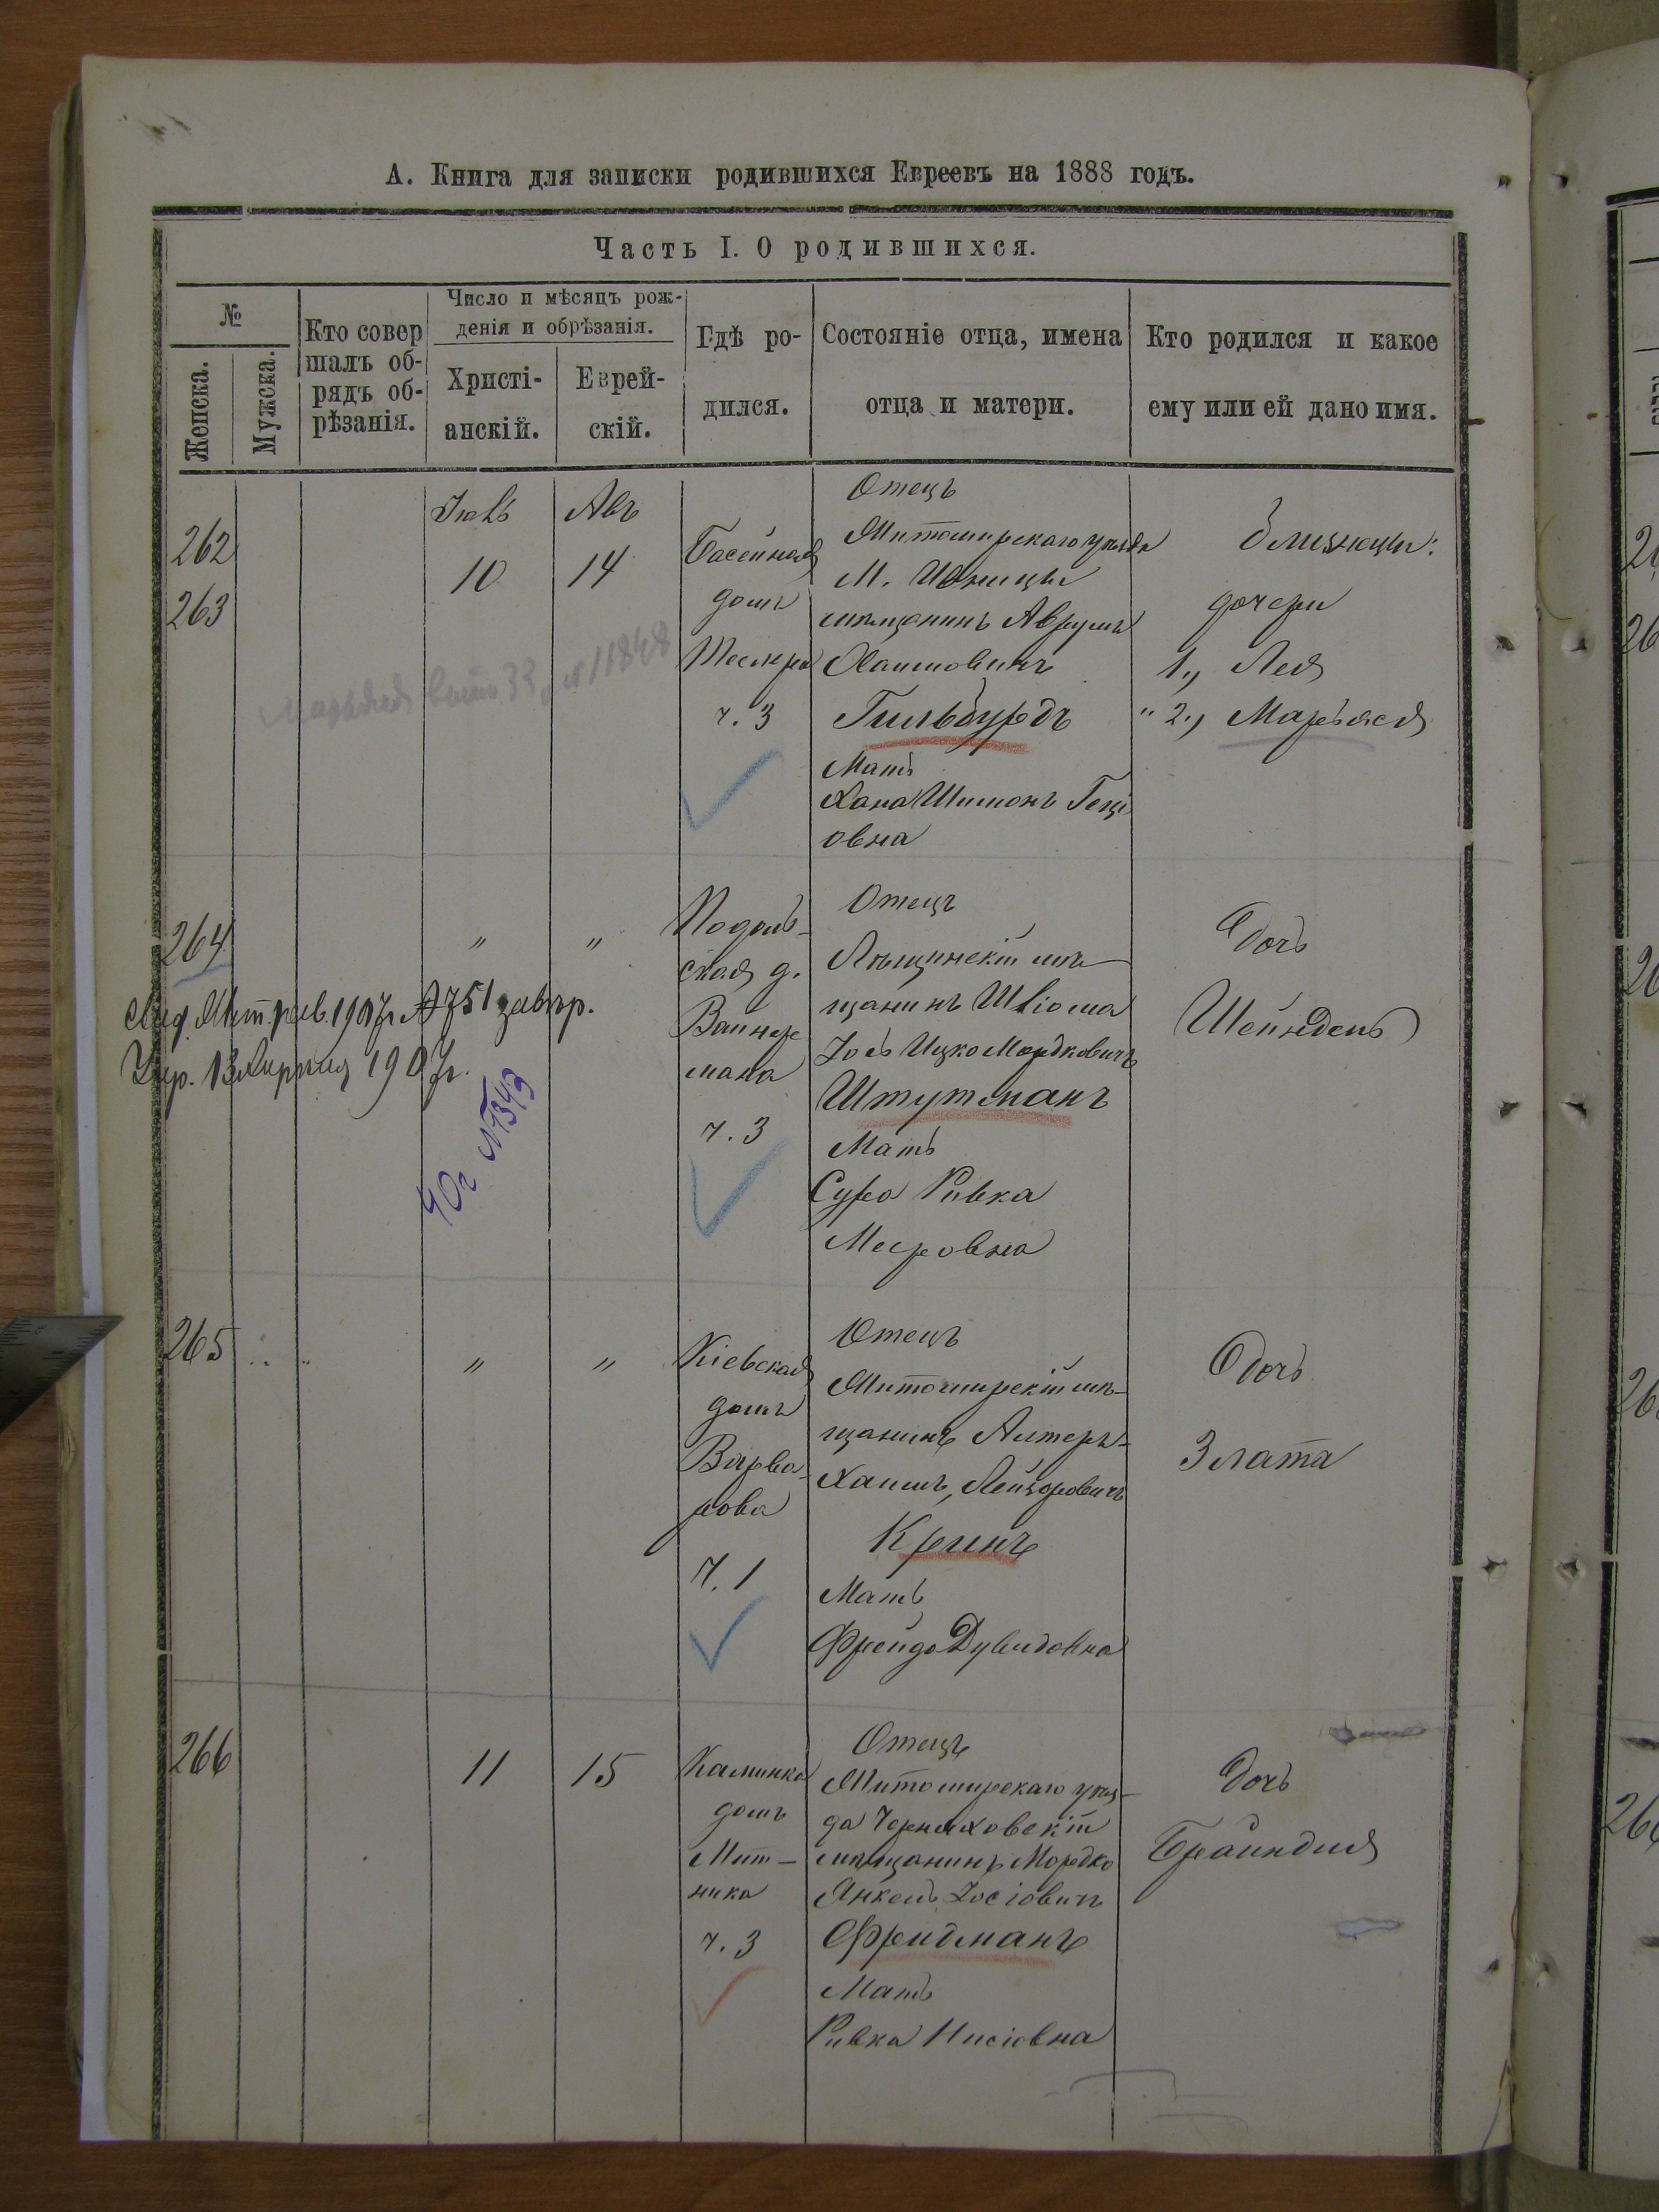 А. Книга для записки родившихся Евреевъ на 1888 годъ.
Часть I. О родившихся.
№
Женска.
Мужска.
Кто совер
шалъ об-
рядъ об-
рѣзанія.
Число и мѣсяцъ рож-
денія и обрѣзанія.
Христі-
анскій.
Еврей-
скій.
Гдѣ ро-
дился.
Состояніе отца, имена
отца и матери.
Кто родился и какое
ему или ей дано имя.
262
263
Іюль
10
Авъ
14
Басейная
домъ
ч. 3
Отецъ
Житомирскаго уѣзда
М. Ивницы
мѣщанинъ Аврумъ
Хаимовичъ
Гильбурдъ
Мать
Хана Шимонъ Геці
овна
близнецы:
дочери
1., Лея
" 2., Марьяся
264
"
"
Подоль-
ская д.
Вайнер
мана
ч. 3
Отецъ
мѣ-
щанинъ Шліома
Іось Ицко Мордковичъ
Штутманъ
Мать
Сура Ривка
Мееровна
дочь
Шейндель
1907г № 751 завѣр.
1907г.
40г № 1343
265
"
"
Кіевская
домъ
Варва-
рова
ч. 1
Отецъ
Житомирскій мѣ-
щанинъ Алтеръ-
Хаимъ, Лейзоровичъ
Кринъ
Мать
Фрейда Дувидовна
дочь
Злата
266
11
15
Каминка
домъ
Мит-
ника
ч. 3
Отецъ
Житомирскаго уѣз-
да Черняховскій
мѣщанинъ Мордко
Янкель Іосіовичъ
Фридманъ
Мать
Ривка Нисіовна
дочь
Брайндля